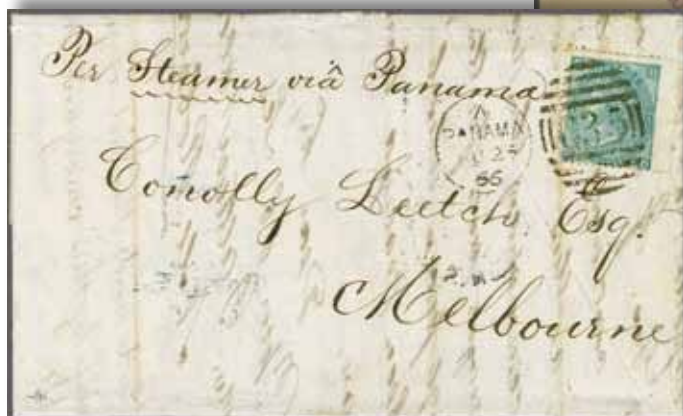 Per Steamer viâ Panama
A
PANAMA
66
Conolly Leitch Esq.
Melbourne